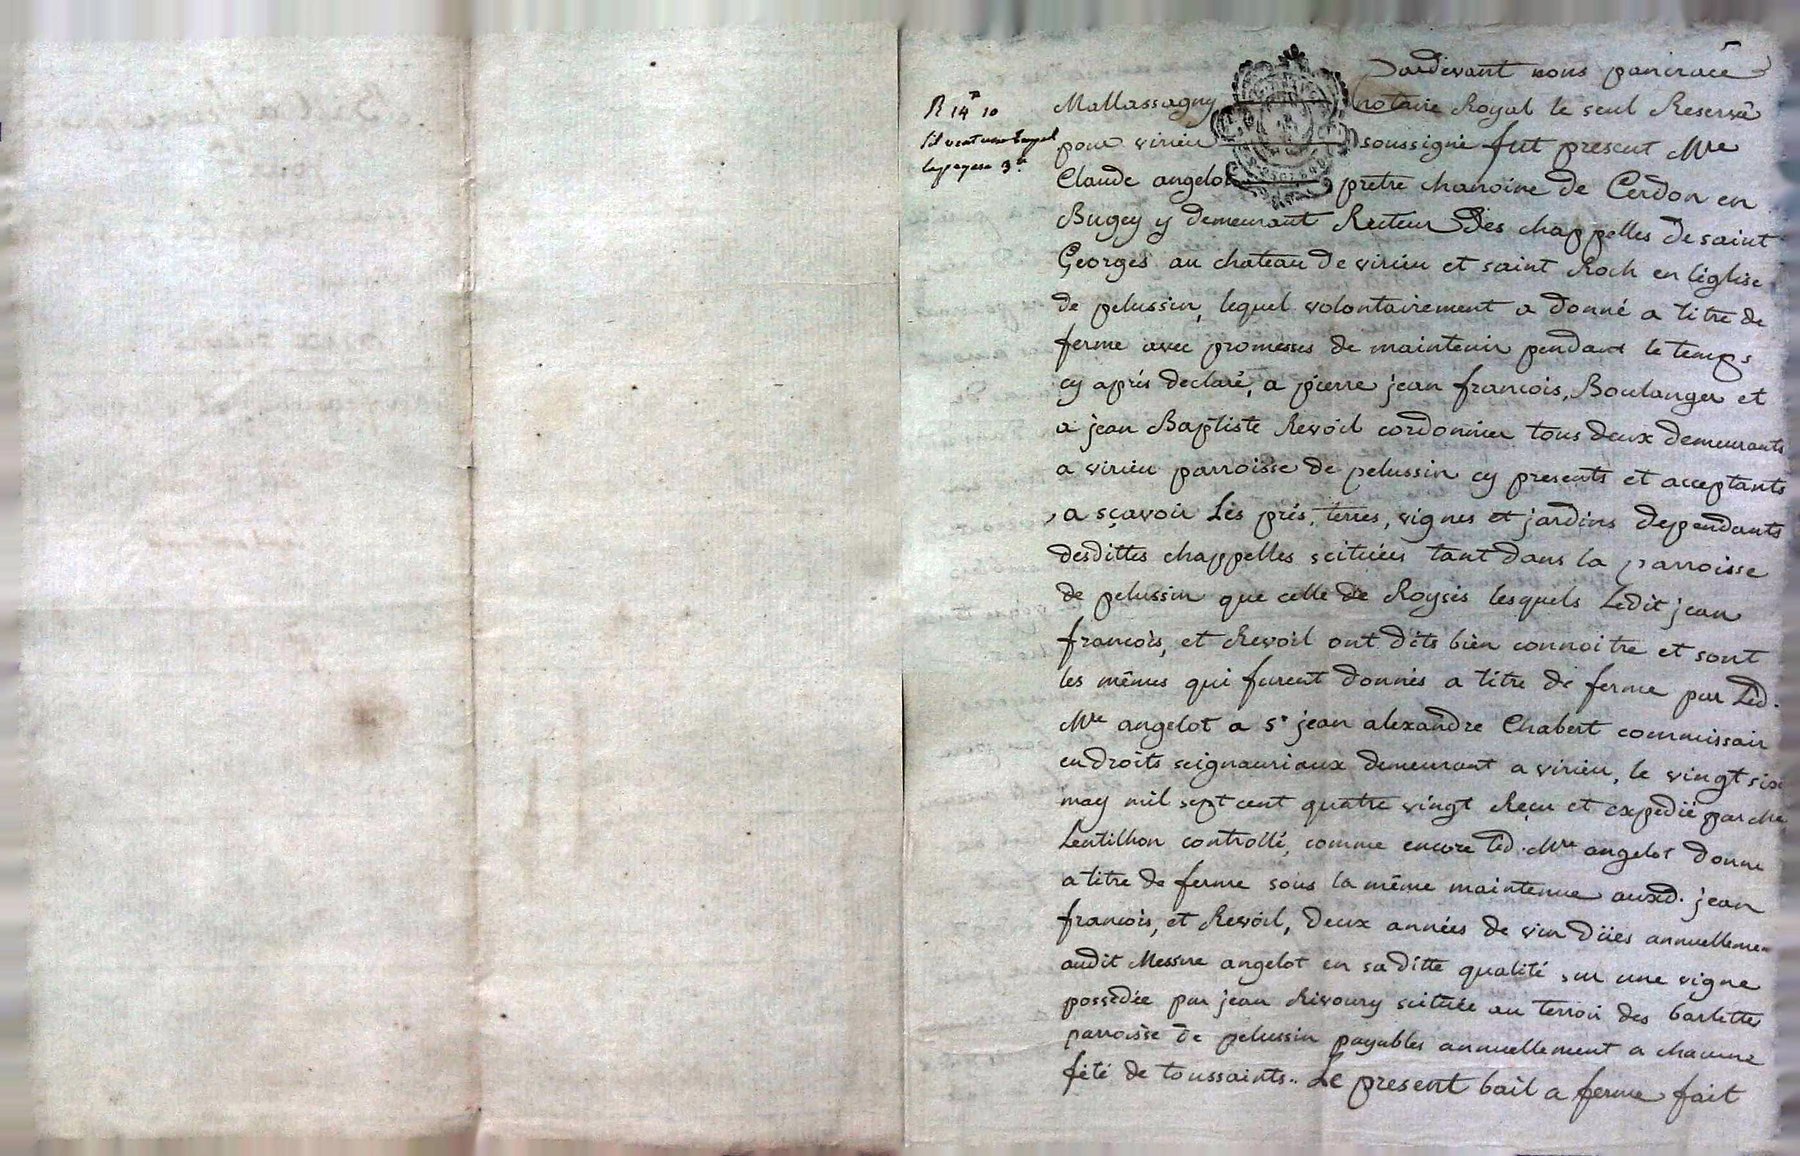 R 14# 10
s'il veut une Expd
la payera 3#
Pardevant nous pancrace
Mallassagny notaire Royal le seul Reservé
pour virieu soussigné fut present Mre
Claude angelot prêtre chanoine de Cerdon en
Bugey y demeurant Recteur Des chappelles de saint
Georges au chateau de virieu et saint Roch en l'églhise
de pelussin, lequel volontairement a donné a titre de
ferme avec promesses de maintenir pendant le temps
cy aprés declaré, a pierre jean francois, Boulanger et
a jean Baptiste Revoil cordonnier tous deux demeurants
a virieu parroisse de pelussin cy presents et acceptants
, a sçavoir Les prés, terres, vignes et jardins dependants
desdittes chappelles scituées tant dans la parroisse
de pelussin que celle de Roysés lesquels Ledit jean
francois, et Revoil ont dits bien connoitre et sont
les mêmes qui furent donnés a titre de ferme par Led.
Mre angelot a Sr jean alexandre Chabert commissair
en droits seigneuriaux demeurant a virieu, le vingt six
may mil sept cent quatre vingt Reçu et expedié par Me
Lentilhon controllé, comme encore led. Mre angelot donne
a titre de ferme sous la même maintenue auxd. jean
francois, et Revoil, deux années de vin düies annuellemen
audit Messire angelot en saditte qualité sur une vigne
possedée par jean Rivoury scituée au terroir des barlettes
parroisse de pelussin payables annuellement a chacune
fété de toussaints.. Le present bail a ferme fait